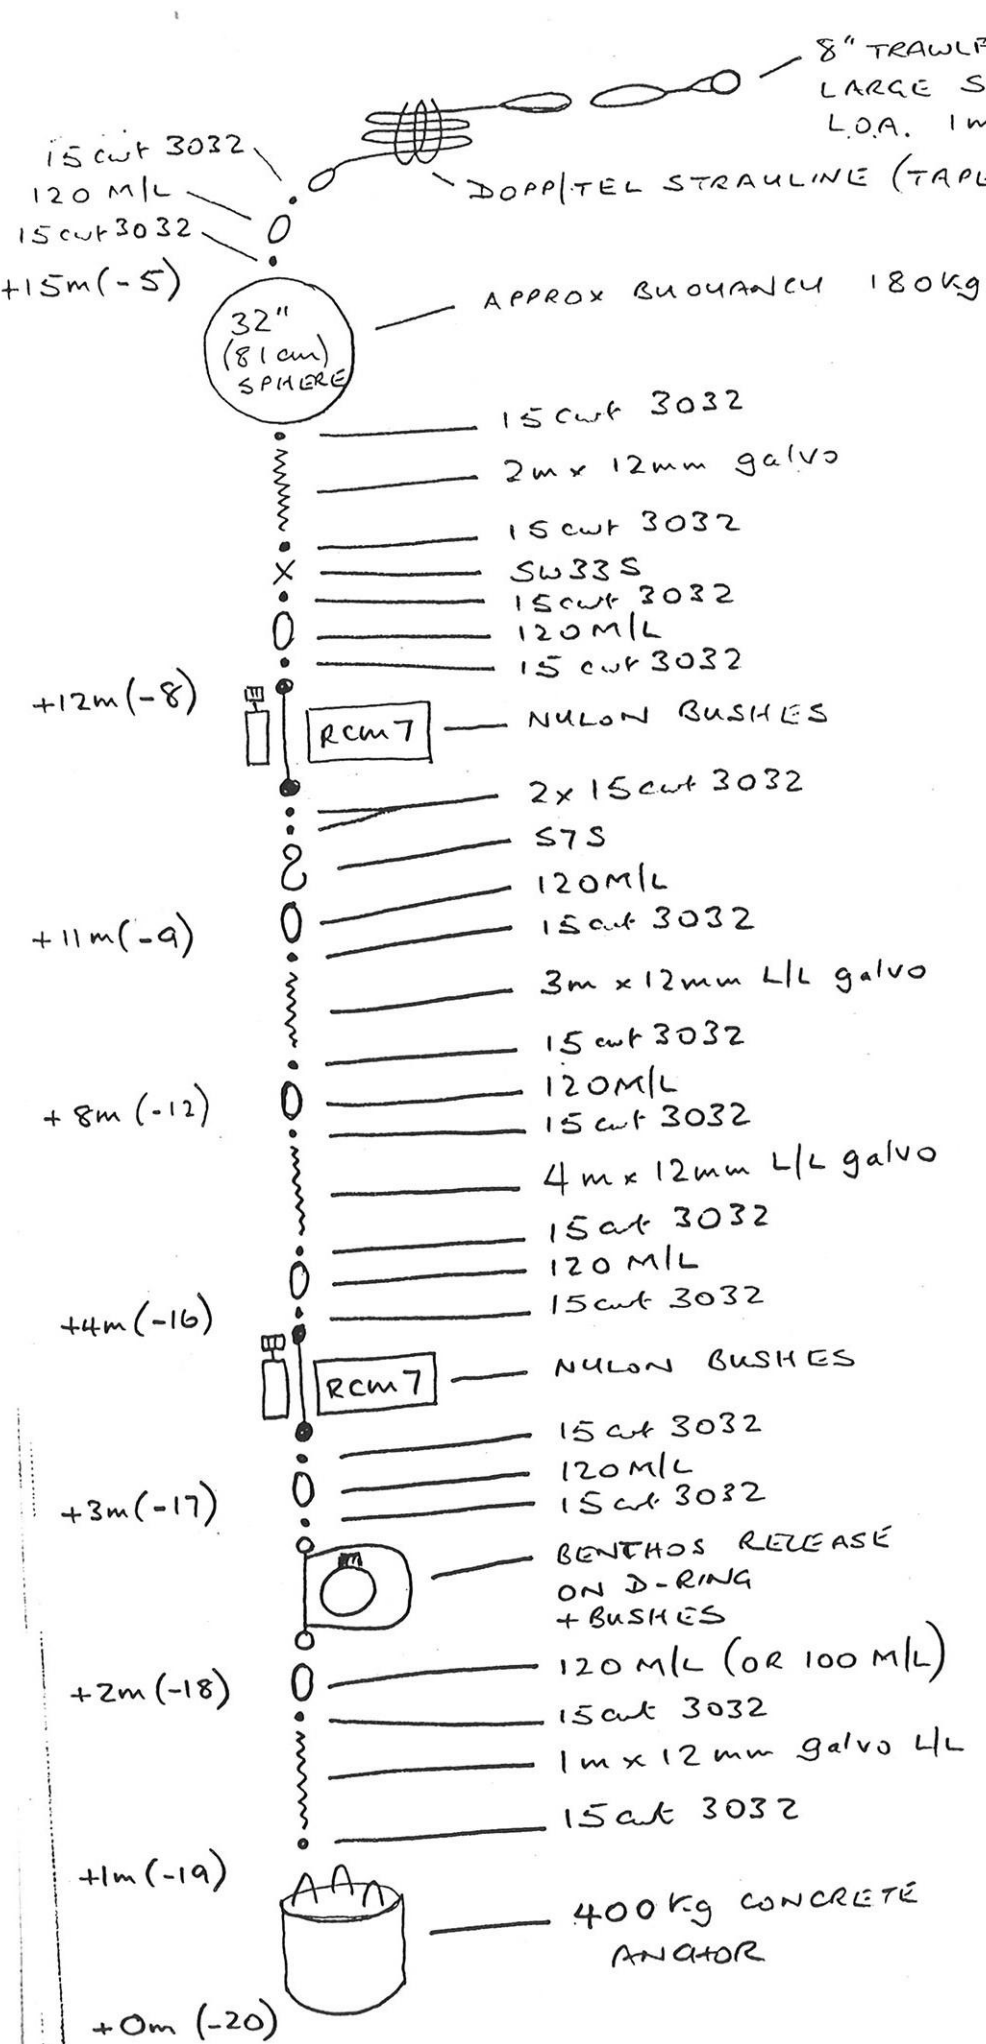 8" TRAWLE
LARGE S
L.O.A. 1m
15 cwt 3032
120 M/L
15 cwt 3032
DOPP/TEL STRAYLINE (TAPE
+15m (-5)
APPROX BUOYANCY 180kg
32"
(81 cm)
SPHERE
15 cwt 3032
2m x 12mm galvo
15 cwt 3032
SW33S
15 cwt 3032
120 M/L
15 cwt 3032
+12m (-8)
RCM 7
NYLON BUSHES
2 x 15 cwt 3032
S7S
120 M/L
+11m (-9)
15 cwt 3032
3m x 12mm L/L galvo
15 cwt 3032
120 M/L
+8m (-12)
15 cwt 3032
4m x 12mm L/L galvo
15 cwt 3032
120 M/L
15 cwt 3032
+4m (-16)
RCM 7
NYLON BUSHES
15 cwt 3032
120 M/L
15 cwt 3032
+3m (-17)
BENTHOS RELEASE
ON D-RING
+ BUSHES
120 M/L (OR 100 M/L)
+2m (-18)
15 cwt 3032
1m x 12mm galvo L/L
15 cwt 3032
+1m (-19)
400 kg CONCRETE
ANCHOR
+0m (-20)